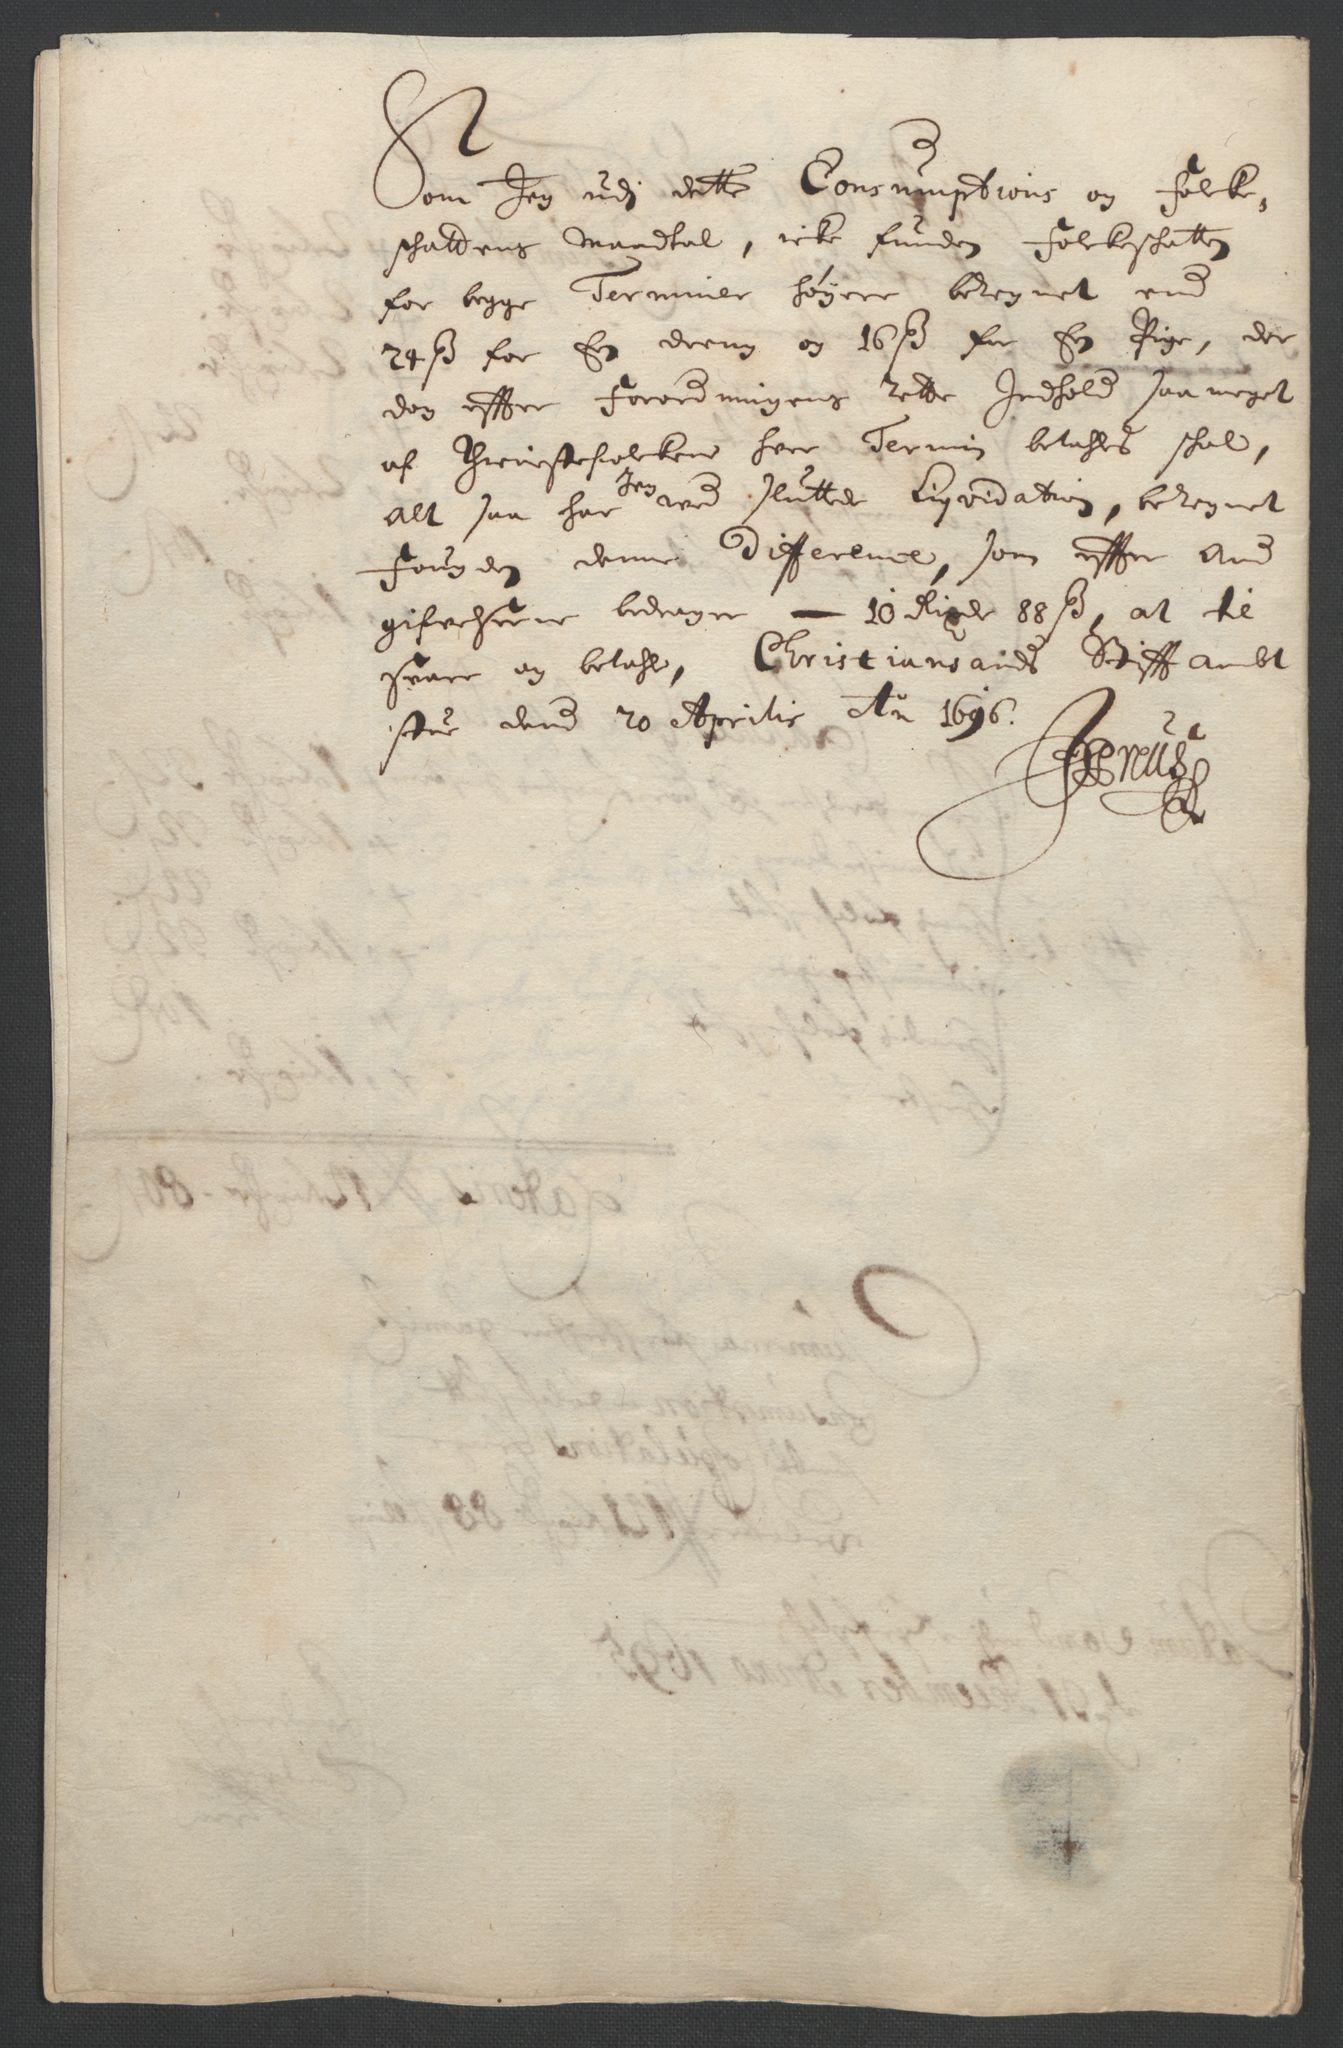 Som Jeg udj dette Consumptions og Folcke,
schattens Mandtal, icke funden Folckeschatten
for begge Terminer høyere beregnet end
24 ß for En dreng og 16 ß for En Pige, der
dog effter Forordningens rette Indhold saa meget
af thienistefolckene hver Termin betahles schal,
alt saa har Jeg ved sluttede Liqvidation, beregnet
Founden denne Difference, som effter And
gifvelserne bedrager — 10 Rixdr 88 ß, at til
svare og betahle, Christiansands Stifft ambt
stue dend 20 Aprilis An 1696.